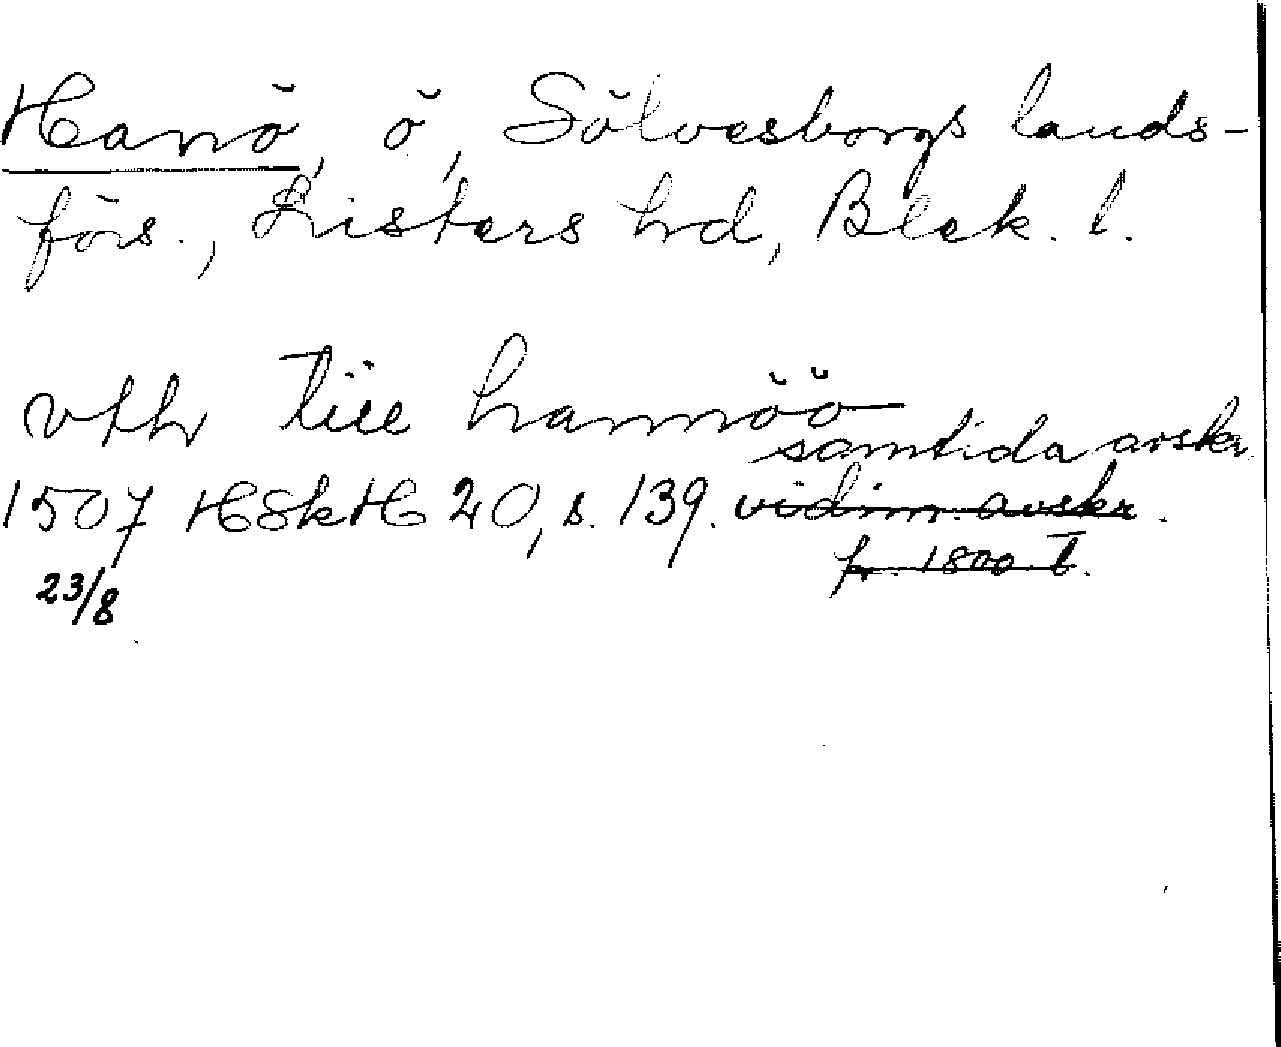 Hanö, ö, Sölvesborgs lands-
förs., Listers hd, Blek. l.
vthr tiill hannöö
samtida avskr.
1507 HSkH 20, s. 139. vidim. avskr.
fr. 1800-t.
23/8